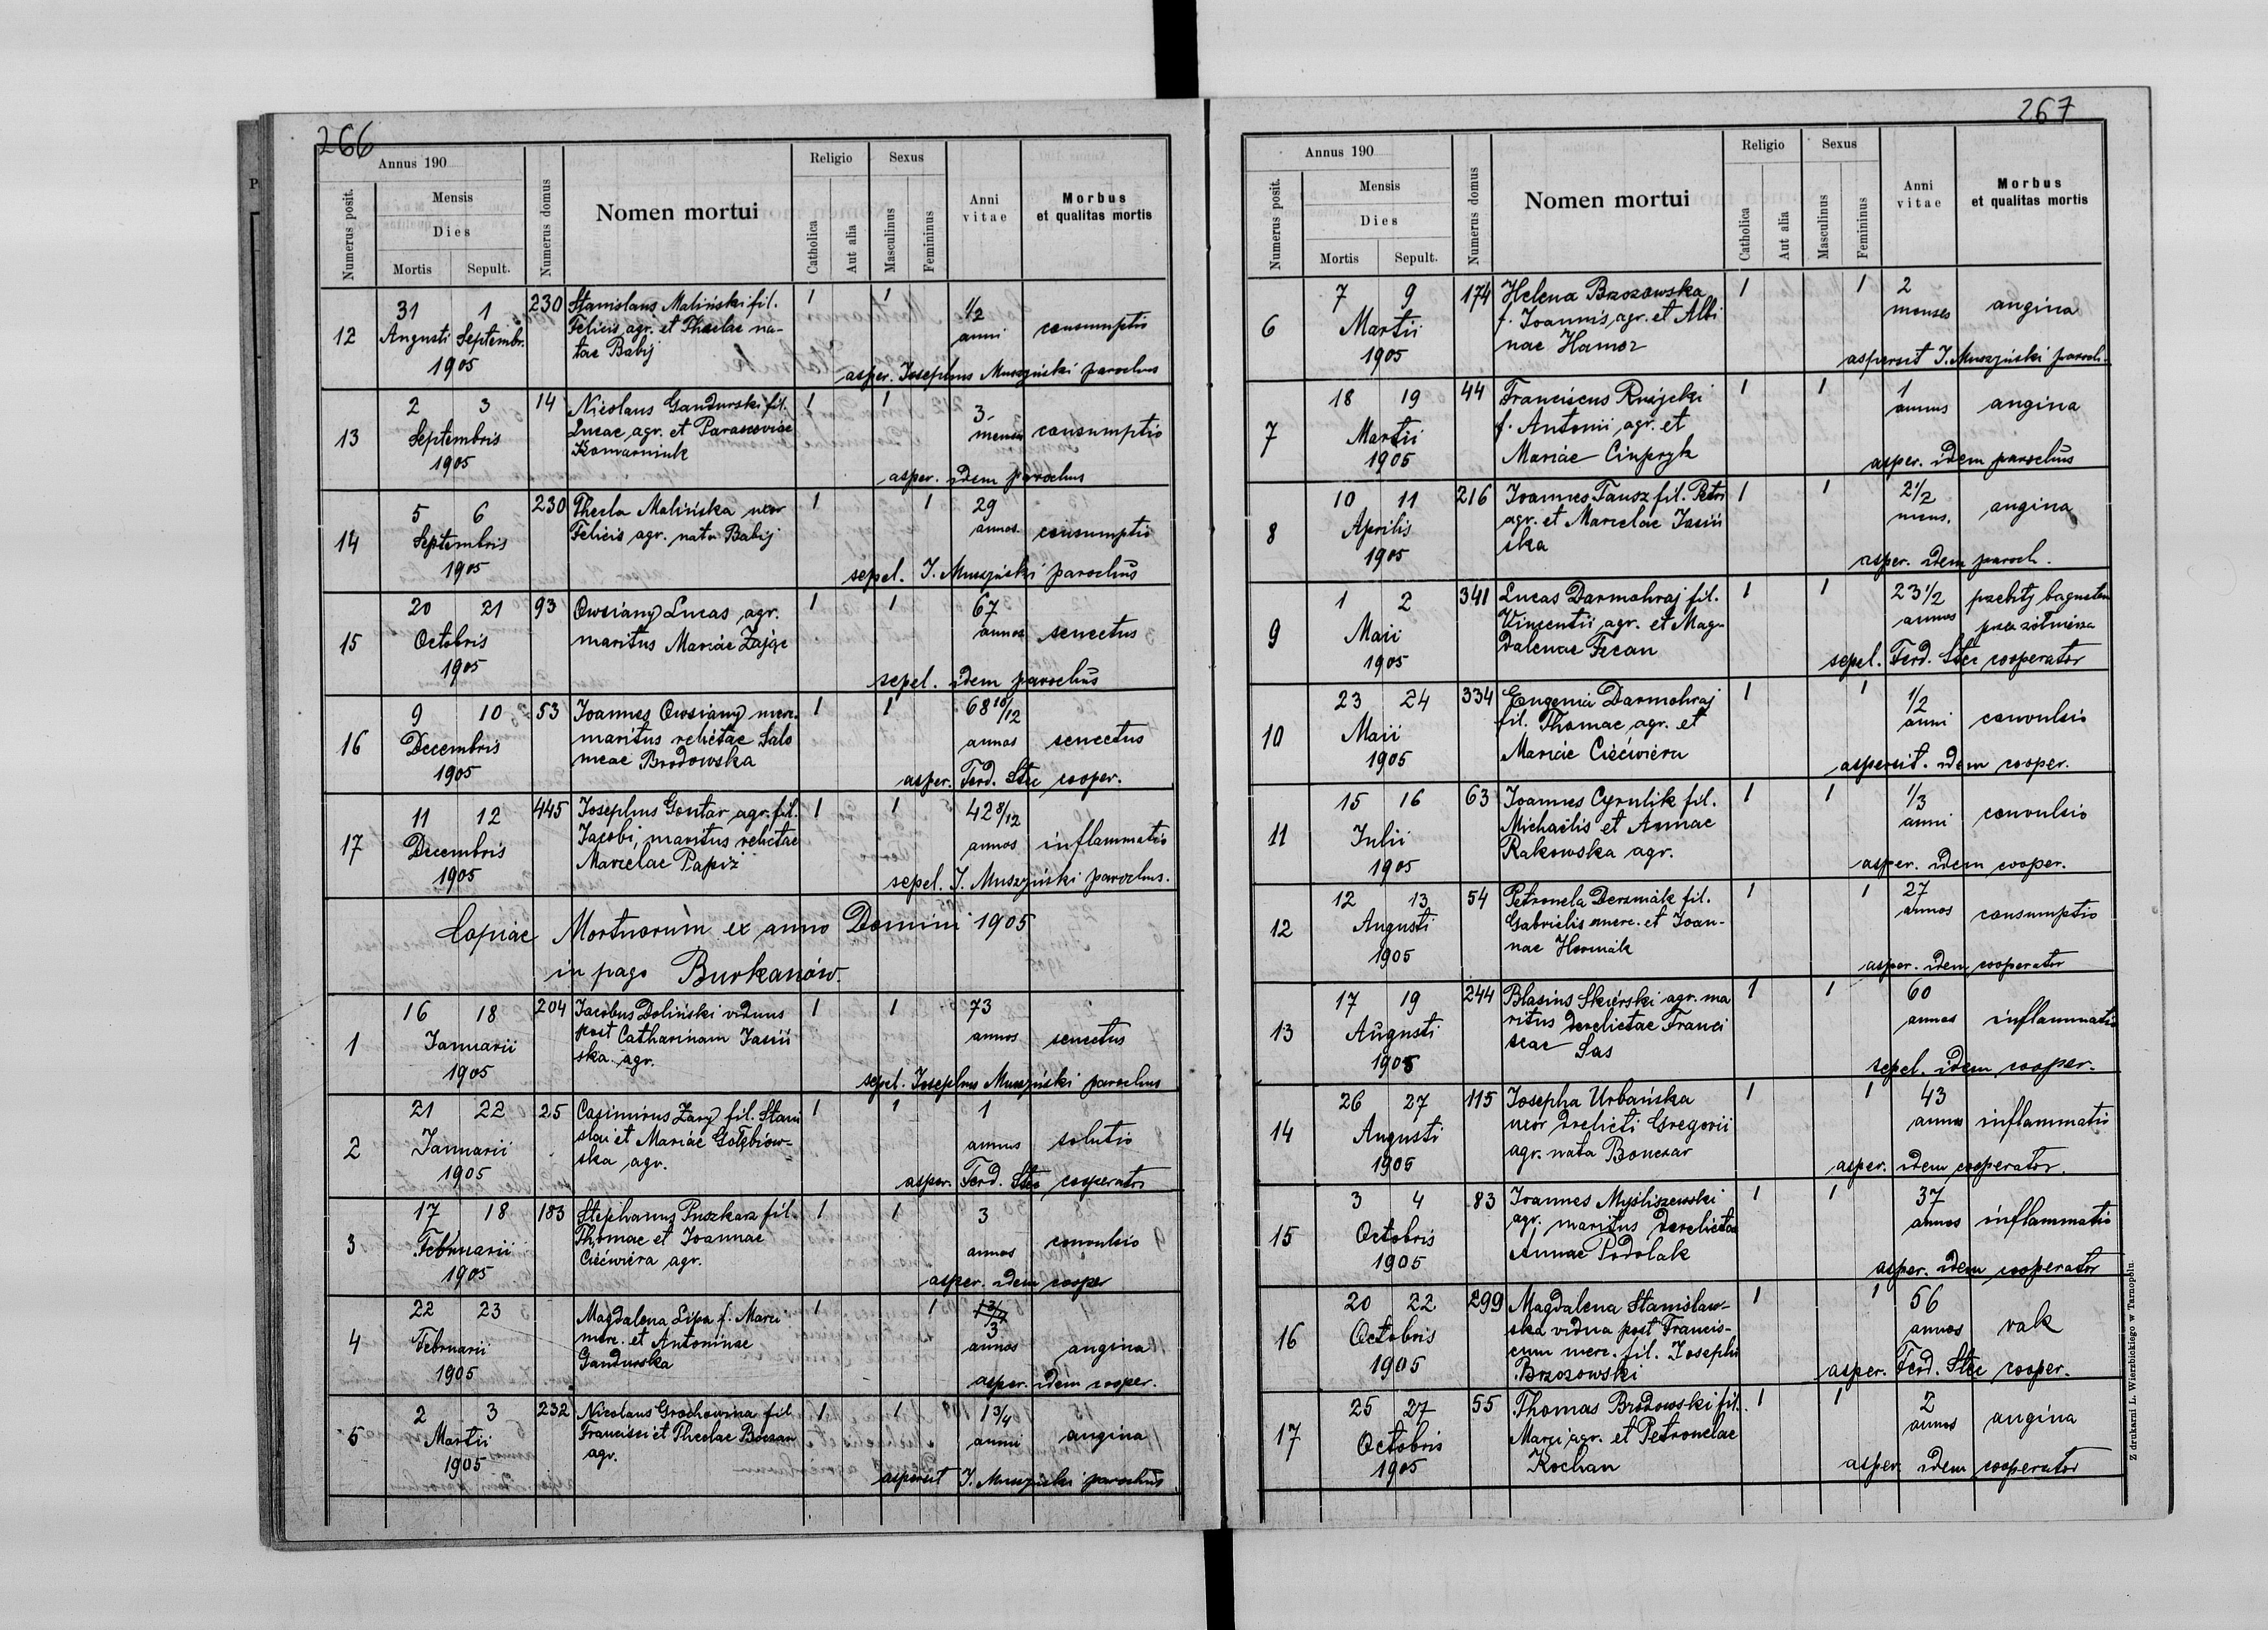 266
Annus 190
Numerus posit.
Mensis
Dies
Mortis
Sepult.
Numerus domus
Nomen mortui
Religio
Catholica
Aut alia
Sexus
Masculinus
Femininus
Anni vitae
Morbus et qualitas mortis
12 31 1 230 Stanislaus Maliński fil. 1 1 1/2
Augusti Septembr. Felicis agr. et Theclae na- anni consumptio
1905 tae Babij
asper. Josephus Muszyński parochus
13 2 3 14 Nicolaus Gandurski fil. 1 1 3
Septembris Lucae agr. et Parascoviae mens. consumptio
1905 Komarniuk
asper. idem parochus
14 5 6 230 Thecla Malińska uxor 1 1 29
Septembris Felicis agr. nata Babij annos consumptio
1905
sepel. J. Muszyński parochus
15 20 21 93 Owsiany Lucas agr. 1 1 67
Octobris maritus Mariae Zając annos senectus
1905
sepel. idem parochus
16 9 10 53 Joannes Owsiany merc. 1 1 68 10/12
Decembris maritus relictae Salo annos senectus
1905 meae Brodowska
asper. Ferd. Stec cooper.
17 11 12 445 Josephus Gontar agr. fil. 1 1 42 8/12
Decembris Jacobi, maritus relictae annos inflammatio
1905 Marcelae Papiż
sepel. J. Muszyński parochus.
Copiae Mortuorum ex anno Domini 1905
in pago Burkanów.
1 16 18 204 Jacobus Doliński viduus 1 1 73
Januarii post Catharinam Jasiń annos senectus
1905 ska agr.
sepel. Josephus Muszyński parochus
2 21 22 25 Casimirus Żary fil. Stani 1 1 1
Januarii slai et Mariae Gołębiow- annus solutio
1905 ska agr.
asper. Ferd. Stec cooperator
3 17 18 183 Stephanus Puszkarz fil. 1 1 3
Februarii Thomae et Joannae annos convulsio
1905 Ciećwiera agr.
asper. idem cooper
4 22 23 Magdalena Lipa f. Marci 1 1
Februarii merc. et Antoninae 3 annos angina
1905 Gandurska
asper. idem cooper.
5 2 3 232 Nicolaus Grochowina fil 1 1 1 3/4
Martii Francisci et Theclae Boczan anni angina
1905 agr.
aspersit J. Muszyński parochus
267
Annus 190
Numerus posit.
Mensis
Dies
Mortis
Sepult.
Numerus domus
Nomen mortui
Religio
Catholica
Aut alia
Sexus
Masculinus
Femininus
Anni vitae
Morbus et qualitas mortis
6 7 9 174 Helena Brzozowska 1 1 2
Martii f. Joannis agr. et Albi menses angina
1905 nae Hamoz
aspersit J. Muszyński paroch.
7 18 19 44 Franciscus Rużycki 1 1 1
Martii f. Antonii agr. et annus angina
1905 Mariae Ciupryk
asper. idem parochus
8 10 11 216 Joannes Tausz fil. Petri 1 1 2 1/2
Aprilis agr. et Marcelae Jasiń mens. angina
1905 ska
asper. idem paroch.
9 1 2 341 Lucas Darmohraj fil. 1 1 23 1/2 przebity bagnetem
Maii Vincentii agr. et Mag- annos przez żołnierza
1905 dalenae Fecan
sepel. Ferd. Stec cooperator
10 23 24 334 Eugenia Darmohraj 1 1 1/2
Maii fil. Thomae agr. et anni convulsio
1905 Mariae Ciećwiera
aspersit. idem cooper.
11 15 16 63 Joannes Cyrulik fil. 1 1 1/3
Julii Michaelis et Annae anni convulsio
1905 Rakowska agr.
asper. idem cooper.
12 12 13 54 Petronela Derzniak fil. 1 1 27
Augusti Gabrielis merc. et Joan- annos consumptio
1905 nae Hermak
asper. idem cooperator
13 17 19 244 Blasius Skierski agr. ma 1 1 60
Augusti ritus derelictae Franci annos inflammatio
1905 scae Sas
sepel. idem cooper.
14 26 27 115 Josepha Urbańska 1 1 43
Augusti uxor drelicti Gregorii annos inflammatio
1905 agr. nata Bonczar
asper. idem cooperator.
15 3 4 83 Joannes Myśliszewski 1 1 37
Octobris agr. maritus derelictae annos inflammatio
1905 Annae Podolak
asper. idem cooperator
16 20 22 299 Magdalena Stanisław- 1 1 56
Octobris ska vidua post Francis- annos rak
1905 cum merc. fil. Josephi
Brzozowski asper. Ferd. Stec cooper.
17 25 27 55 Thomas Brodowski fil. 1 1 2
Octobris Marci agr. et Petronelae annos angina
1905 Kochan
asper idem cooperator
Z drukarni L. Wierzbickiego w Tarnopolu.